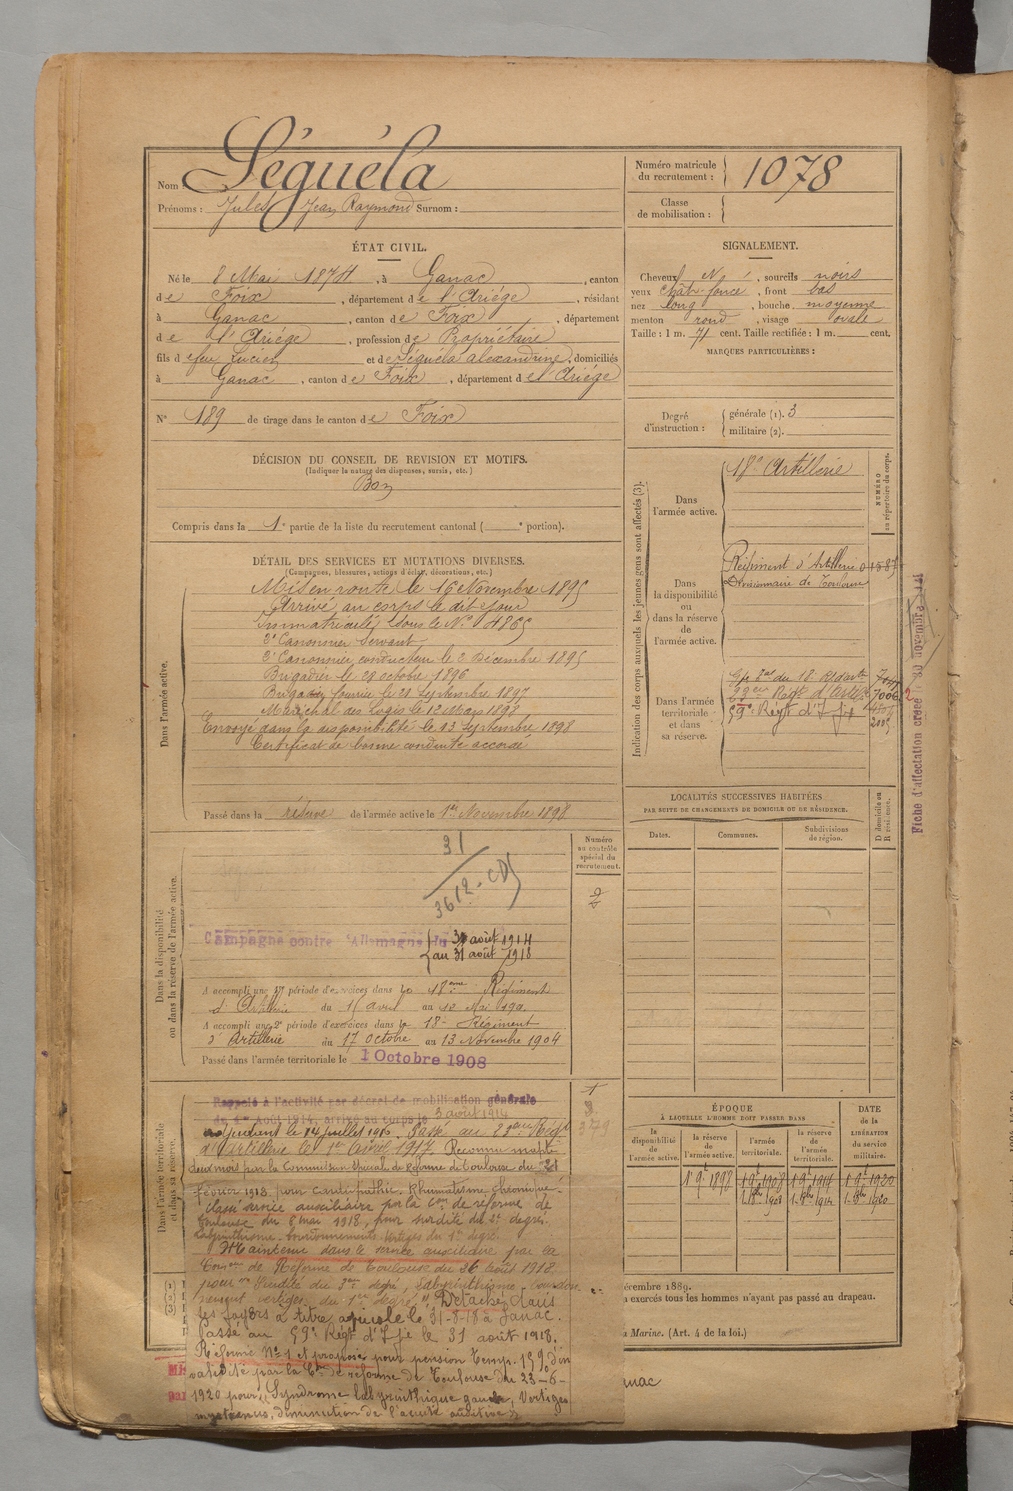 Nom : Séguéla
Prénoms : Jules Jean Raymond Surnom :
Numéro matricule
du recrutement : 1078
Classe
de mobilisation :
ÉTAT CIVIL.
Né le 8 Mai 1874, à Ganac, canton
de Foix, département de l'Ariége, résidant
à Ganac, canton de Foix, département
de l'Ariége, profession de Propriétaire
fils de feu Lucien et de Séguéla Alexandrine, domiciliés
à Ganac, canton de Foix, département de l'Ariége
N° 189 de tirage dans le canton de Foix
DÉCISION DU CONSEIL DE REVISION ET MOTIFS.
(Indiquer la nature des dispenses, sursis, etc.)
Bon
Compris dans la 1e partie de la liste du recrutement cantonal ( e portion).
SIGNALEMENT.
Cheveux N, sourcils noirs
yeux chât. foncé, front bas
nez long, bouche moyenne
menton rond, visage ovale
Taille : 1 m. 71 cent. Taille rectifiée : 1 m. cent.
MARQUES PARTICULIÈRES :
Degré
d'instruction :
générale (1). 3
militaire (2).
DÉTAIL DES SERVICES ET MUTATIONS DIVERSES.
(Campagnes, blessures, actions d'éclat, décorations, etc.)
Dans l'armée active.
Mis en route le 16 Novembre 1895
Arrivé au corps le dit jour
Immatriculé sous le N° 4865
2e Canonnier Servant
2e Canonnier conducteur le 2 Décembre 1895
Brigadier le 29 octobre 1896
Brigadier fourrier le 21 Septembre 1897
Maréchal des Logis le 12 Mars 1898
Envoyé dans la disponibilité le 23 Septembre 1898
Certificat de bonne conduite accordé
Passé dans la réserve de l'armée active le 1er Novembre 1898
Indication des corps auxquels les jeunes gens sont affectés (3).
NUMÉRO
au répertoire du corps.
Dans
l'armée active.
18e Artillerie
Dans
la disponibilité
ou
dans la réserve
de
l'armée active.
Régiment d'Artillerie
Divisionnaire de Toulouse
Dans l'armée
territoriale
et dans
sa réserve.
23e Régt d'Art 7006
59e Régt d'Ifie
Fiche d'affectation créée le 30 novembre
Dans la disponibilité
ou dans la réserve de l'armée active.
Numéro
au contrôle
spécial du
recrutement.
31
3612
Campagne contre l'Allemagne du 3 août 1914
au 31 août 1918
A accompli une 1re période d'exercices dans le 18eme Régiment
d'Artillerie du 15 avril au 12 Mai 190
A accompli une 2e période d'exercices dans le 18e Régiment
d'Artillerie du 17 octobre au 13 Novembre 1904
Passé dans l'armée territoriale le 1 Octobre 1908
LOCALITÉS SUCCESSIVES HABITÉES
PAR SUITE DE CHANGEMENTS DE DOMICILE OU DE RÉSIDENCE.
Dates.
Communes.
Subdivisions
de région.
D domicile ou
R résidence.
Dans l'armée territoriale
et dans sa réserve.
Rappelé à l'activité par décret de mobilisation générale
du 1er Août 1914, arrivé au corps le 3 août 1914
Adjudant le 14 juillet 1916. Passé au 23eme Régt
d'Artillerie le 1er avril 1917. Reconnu inapte
deux mois par la Commission Spéciale de Réforme de Toulouse du 21
février 1918 pour cardiopathie. Rhumatisme chronique.
Classé service auxiliaire par la Con de réforme de
Toulouse du 8 mai 1918, pour surdité du 2e degré.
labyrinthisme. bourdonnements. Vertiges du 1er degré.
Maintenu dans le service auxiliaire par la
Con de Réforme de Toulouse du 26 août 1918.
pour surdité du 3eme degré, labyrinthisme
vertiges du 1er degré. Détaché dans
ses foyers à titre agricole le 31-8-18 à Ganac.
Passé au 59e Régt d'Ifie le 31 août 1918.
Réformé N° 1 et proposé pour pension Temp. 15% d'in
validité par la Con de réforme de Toulouse du 23-6-
1920 pour Syndrome labyrinthique gauche, Vertiges
diminution de l'acuité auditive
ÉPOQUE
À LAQUELLE L'HOMME DOIT PASSER DANS
la
disponibilité
de
l'armée active.
la réserve
de
l'armée active.
l'armée
territoriale.
la réserve
de l'armée
territoriale.
DATE
de la
LIBÉRATION
du service
militaire.
1 9bre 1898
1 9bre 1908
1 9bre 1914
1 9bre 1920
1 8bre 1908
1 8bre 1914
1 8bre 1920
écembre 1889.
a exercés tous les hommes n'ayant pas passé au drapeau.
a Marine. (Art. 4 de la loi.)
anac